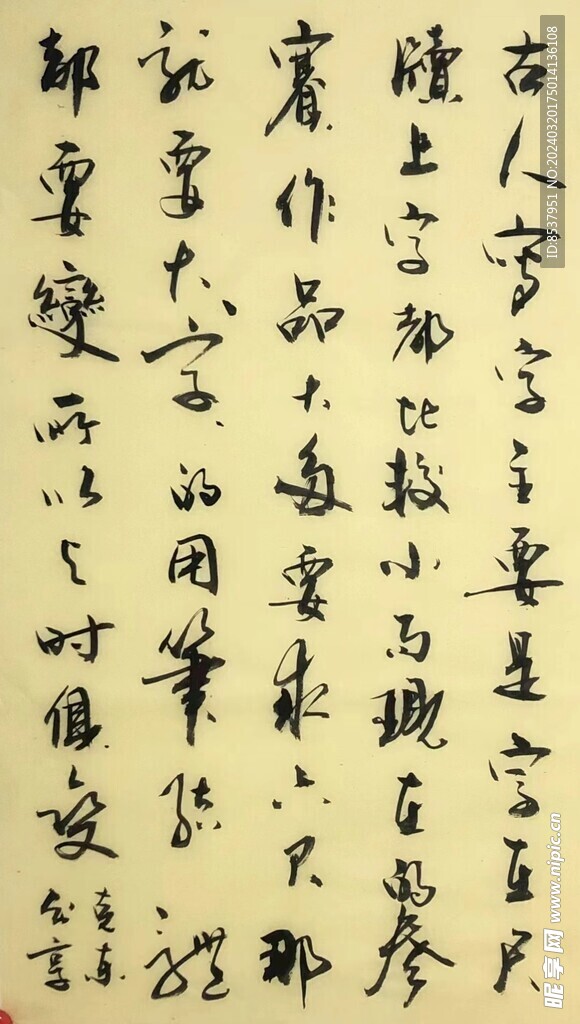 古人写字主要是字在尺
牍上字都比较小而现在的参
赛作品大多要求六尺那
就要大字的用笔结体
都要变所以与时俱变
克东
分享
ID:8537951 NO:20240320175014136108
昵享网 www.nipic.cn